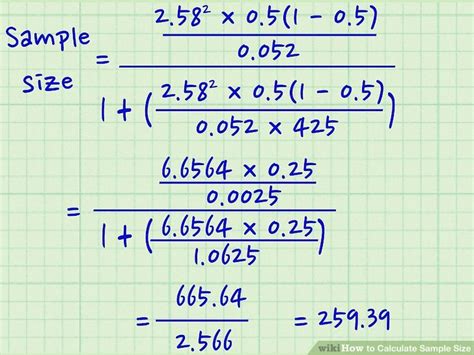 Sample size = 2.58² x 0.5(1 - 0.5)
0.052
1 + (2.58² x 0.5(1 - 0.5)
0.052 x 425)
= 6.6564 x 0.25
0.0025
1 + (6.6564 x 0.25
1.0625)
= 665.64
2.566
= 259.39
wikiHow to Calculate Sample Size